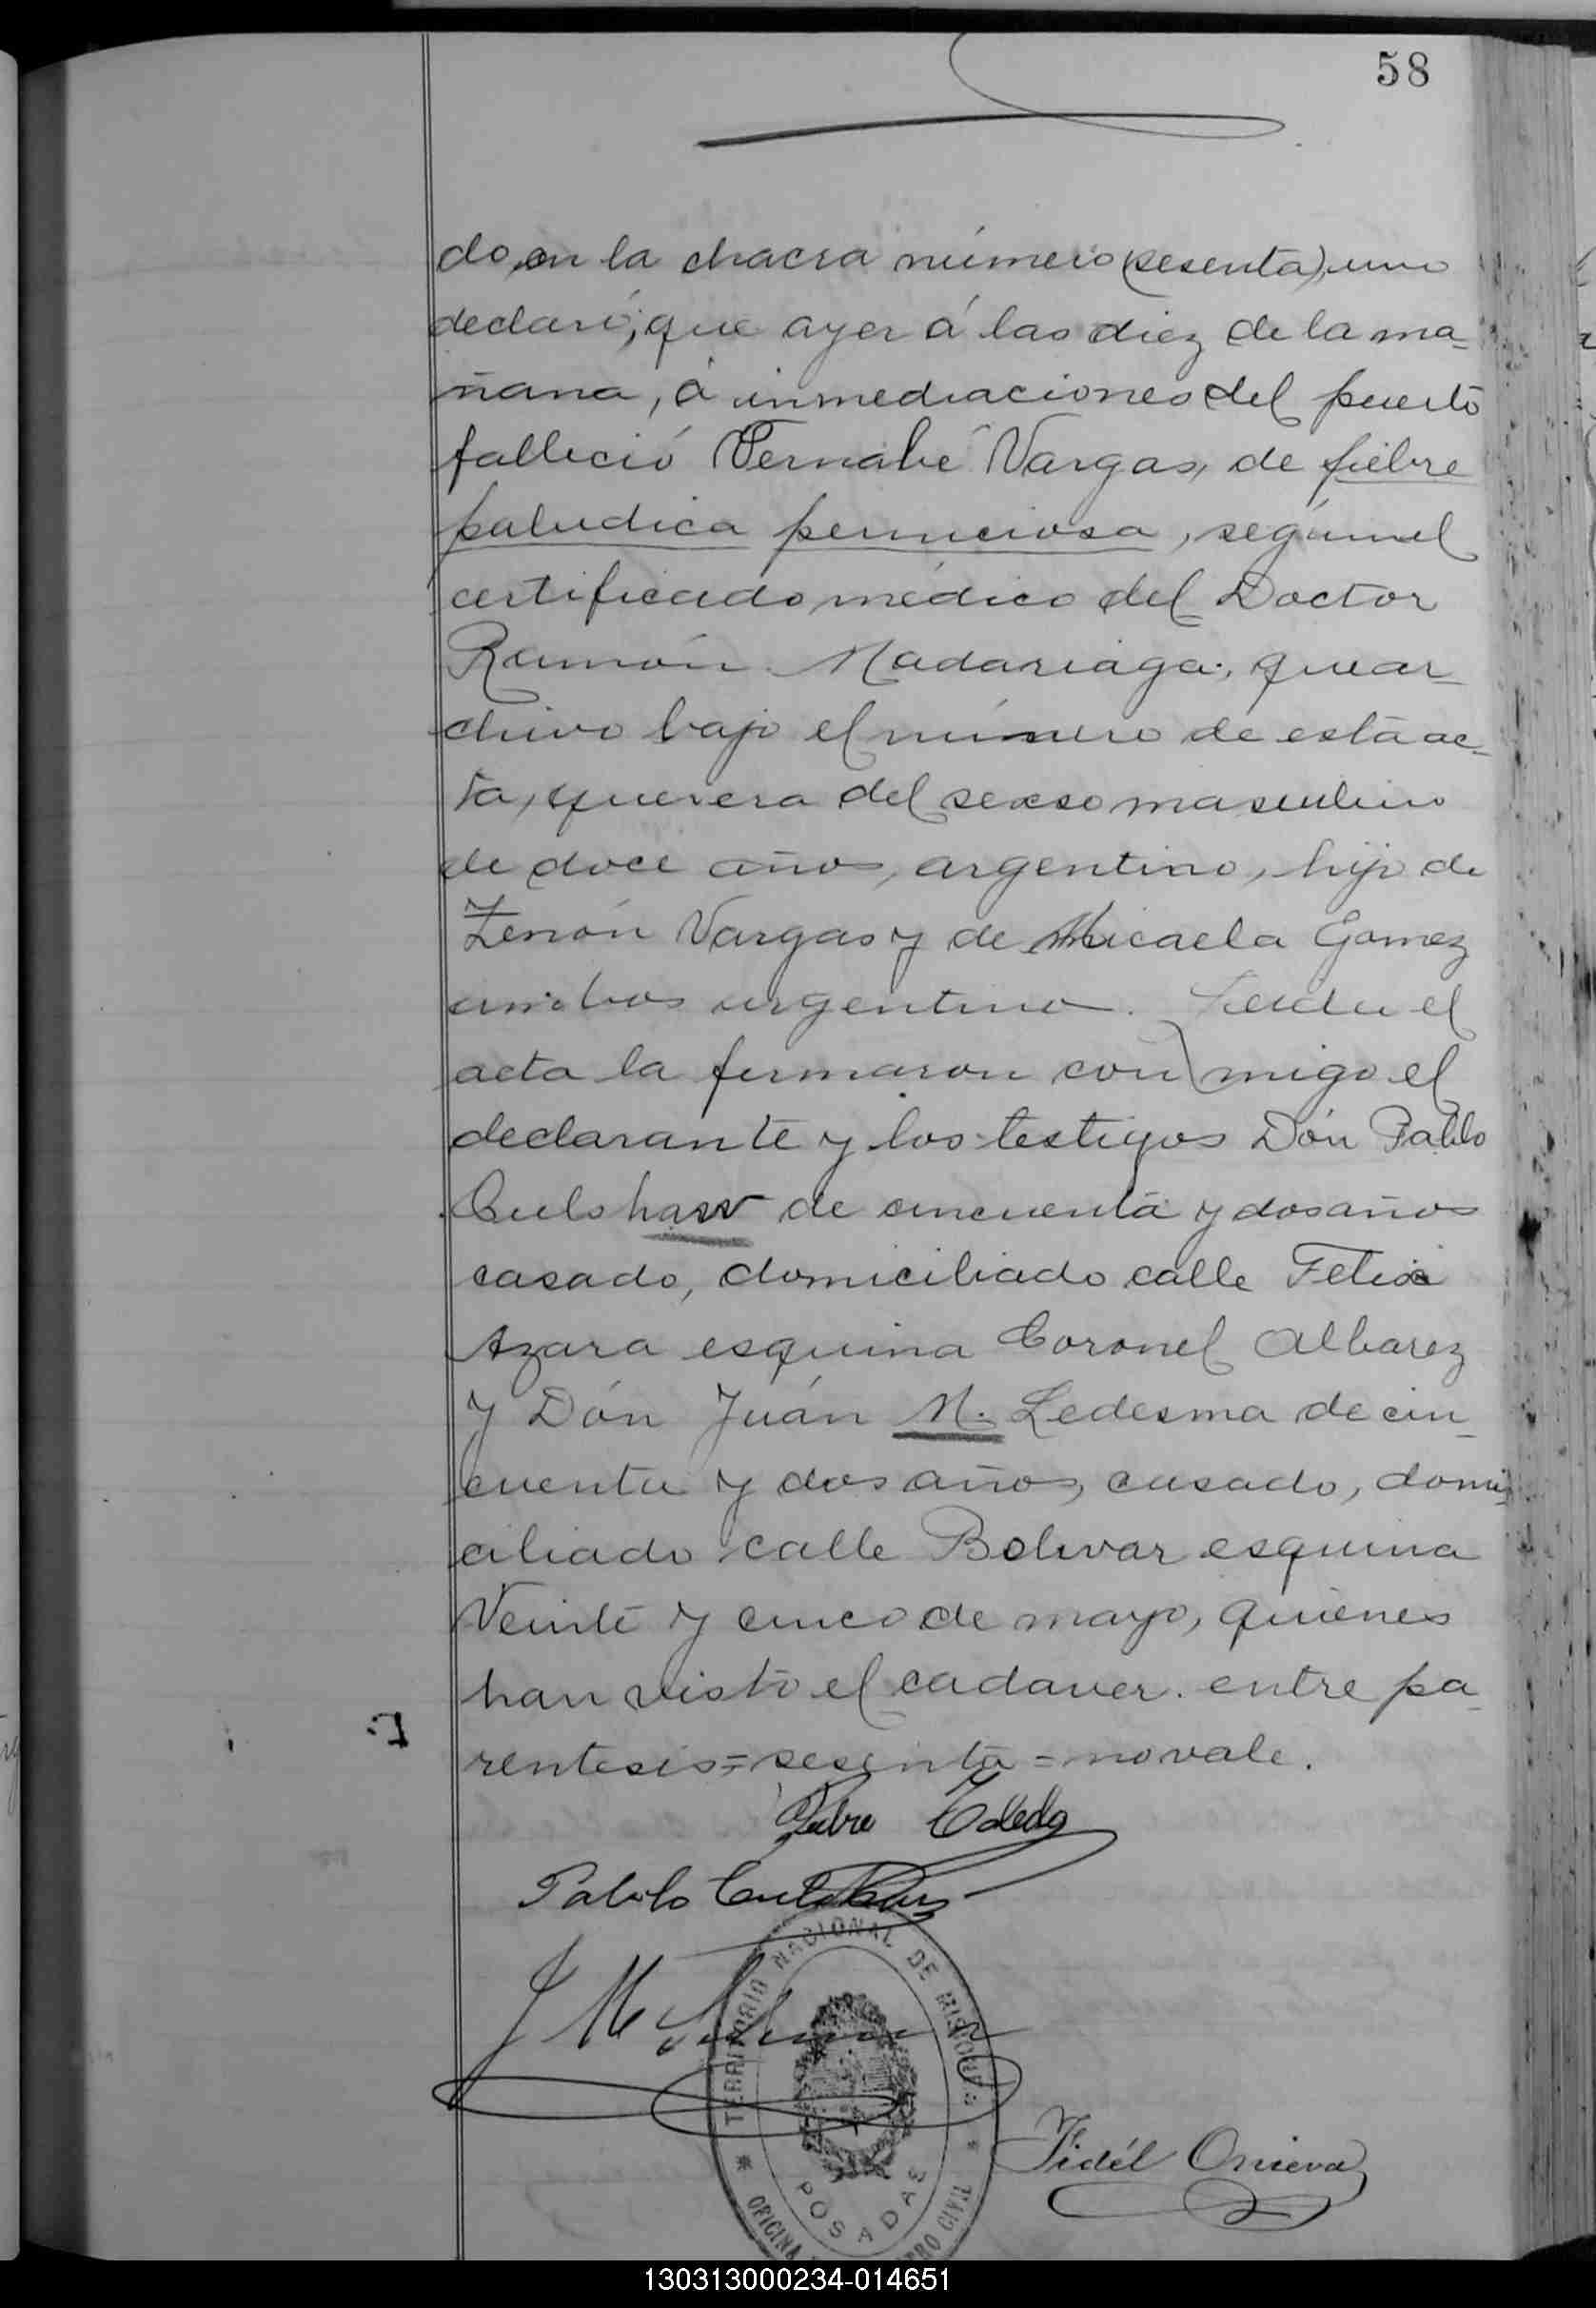 58
do, en la chacra número (sesenta) uno
declaró; que ayer á las diez de la ma-
ñana, á inmediaciones del puerto
falleció Vernabé Vargas, de fiebre
paludica perniciosa, según el
certificado médico del Doctor
Ramón Madariaga, que ar-
chivo bajo el número de esta ac-
ta, que era del sexso masculino
de doce años, argentino, hijo de
Zenón Vargas y de Micaela Gomez
ambos argentino. Leida el
acta la firmaron con migo el
declarante y los testigos Dón Pablo
Culshaw de cincuenta y dos años
casado, domiciliado calle Felix
Azara esquina Coronel Albarez
y Dón Juán M. Ledesma de cin-
cuenta y dos años, casado, domi-
ciliado calle Bolivar esquina
Veinte y cinco de mayo, quienes
han visto el cadaver. entre pa-
rentesis = sesenta = no vale.
Toledo
Pablo Culshaw
J M Ledesma
TERRITORIO NACIONAL DE MISIONES
POSADAS
OFICINA CIVIL
Fidél
130313000234-014651